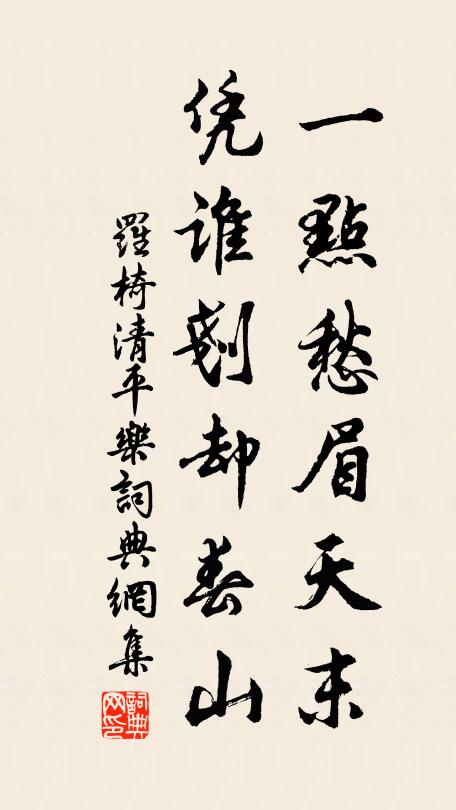 一點愁眉天末
凭誰剗却春山
羅椅清平樂詞典網集
詞典网印